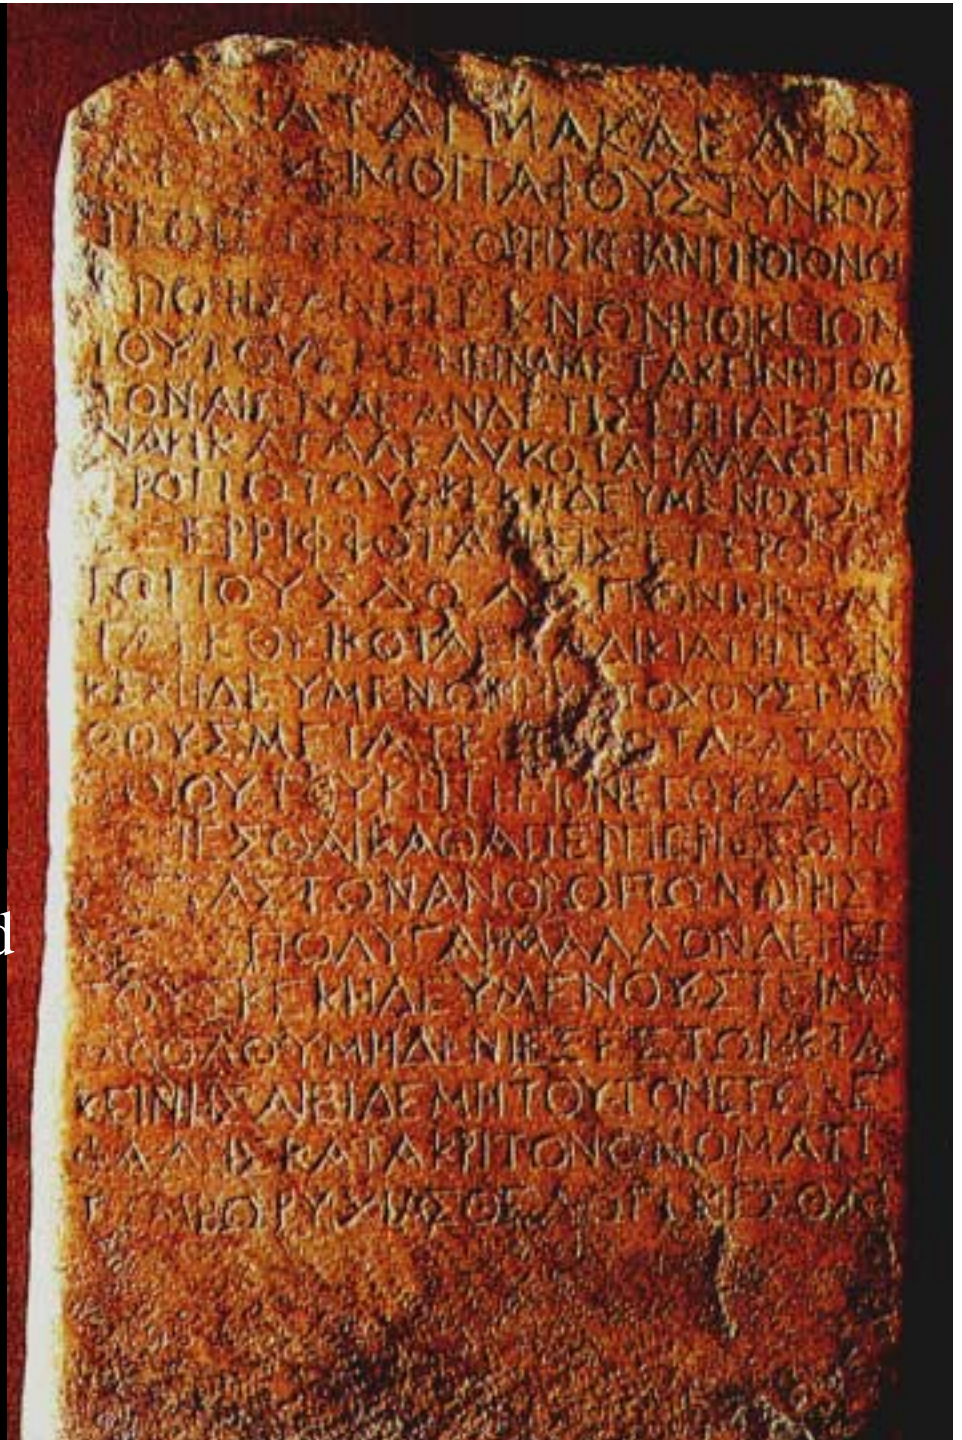 ΔΙΑΤΑΓΜΑ ΚΑΙΣΑΡΟΣ
ΜΟΙ ΤΑΦΟΥΣ ΤΥΝΒΟΥΣ
ΕΙΣ ΘΡΗΣΚΕΙΑΝ ΠΡΟΓΟΝΩΝ
ΕΠΟΙΗΣΑΝ Η ΤΕΚΝΩΝ Η ΟΙΚΕΙΩΝ
ΤΟΥΤΟΥΣ ΜΕΝΕΙΝ ΑΜΕΤΑΚΕΙΝΗΤΟΥΣ
ΤΟΝ ΑΙΩΝΑ ΕΑΝ ΔΕ ΤΙΣ ΕΠΙΔΙΞΗ ΤΙ
ΝΑ Η ΚΑΤΑΛΕΛΥΚΟΤΑ Η ΑΛΛΩ ΤΙΝΙ
ΤΡΟΠΩ ΤΟΥΣ ΚΕΚΗΔΕΥΜΕΝΟΥΣ
ΕΞΕΡΡΙΦΦΟΤΑ Η ΕΙΣ ΕΤΕΡΟΥΣ
ΤΟΠΟΥΣ ΔΩΛΩ ΠΟΝΗΡΩ ΜΕ
ΤΑΤΕΘΕΙΚΟΤΑ ΕΠ ΑΔΙΚΙΑ ΤΗ ΤΩΝ
ΚΕΚΗΔΕΥΜΕΝΩΝ Η ΚΑΤΟΧΟΥΣ Η ΛΙ
ΘΟΥΣ ΜΕΤΑΤΕΘΕΙΚΟΤΑ ΚΑΤΑ ΤΟΥ
ΤΟΙΟΥΤΟΥ ΚΡΙΤΗΡΙΟΝ ΕΓΩ ΚΕΛΕΥΩ
ΓΕΝΕΣΘΑΙ ΚΑΘΑΠΕΡ ΠΕΡΙ ΘΕΩΝ
ΤΑΣ ΤΩΝ ΑΝΘΡΩΠΩΝ ΘΡΗΣ
ΠΟΛΥ ΓΑΡ ΜΑΛΛΟΝ ΔΕΗΣΕΙ
ΤΟΥΣ ΚΕΚΗΔΕΥΜΕΝΟΥΣ ΤΕΙΜΑΝ
ΚΑΘΟΛΟΥ ΜΗΔΕΝΙ ΕΞΕΣΤΩ ΜΕΤΑ
ΚΕΙΝΗΣΑΙ ΕΙ ΔΕ ΜΗ ΤΟΥΤΟΝ ΕΓΩ ΚΕ
ΦΑΛΗΣ ΚΑΤΑΚΡΙΤΟΝ ΟΝΟΜΑΤΙ
ΤΥΜΒΩΡΥΧΙΑΣ ΘΕΛΩ ΓΕΝΕΣΘΑΙ